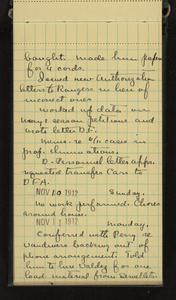 bought. made him paper
for 4 cords.
Issued new Authorization
letters to Rangers in lieu of
incorrect ones
worked up data on
season petitions and
wrote letter D.F.
memo. re o/n cases in
prof. eliminations.
D - Personnel letter asks
requested transfer Carr to
D F A.
NOV 10 1912 Sunday.
no work performed. Chores
around home.
NOV 11 1912 Monday.
Conferred with Perry re
backing out of
phone arrangements. Told
him to hire Waldy for one
load material from